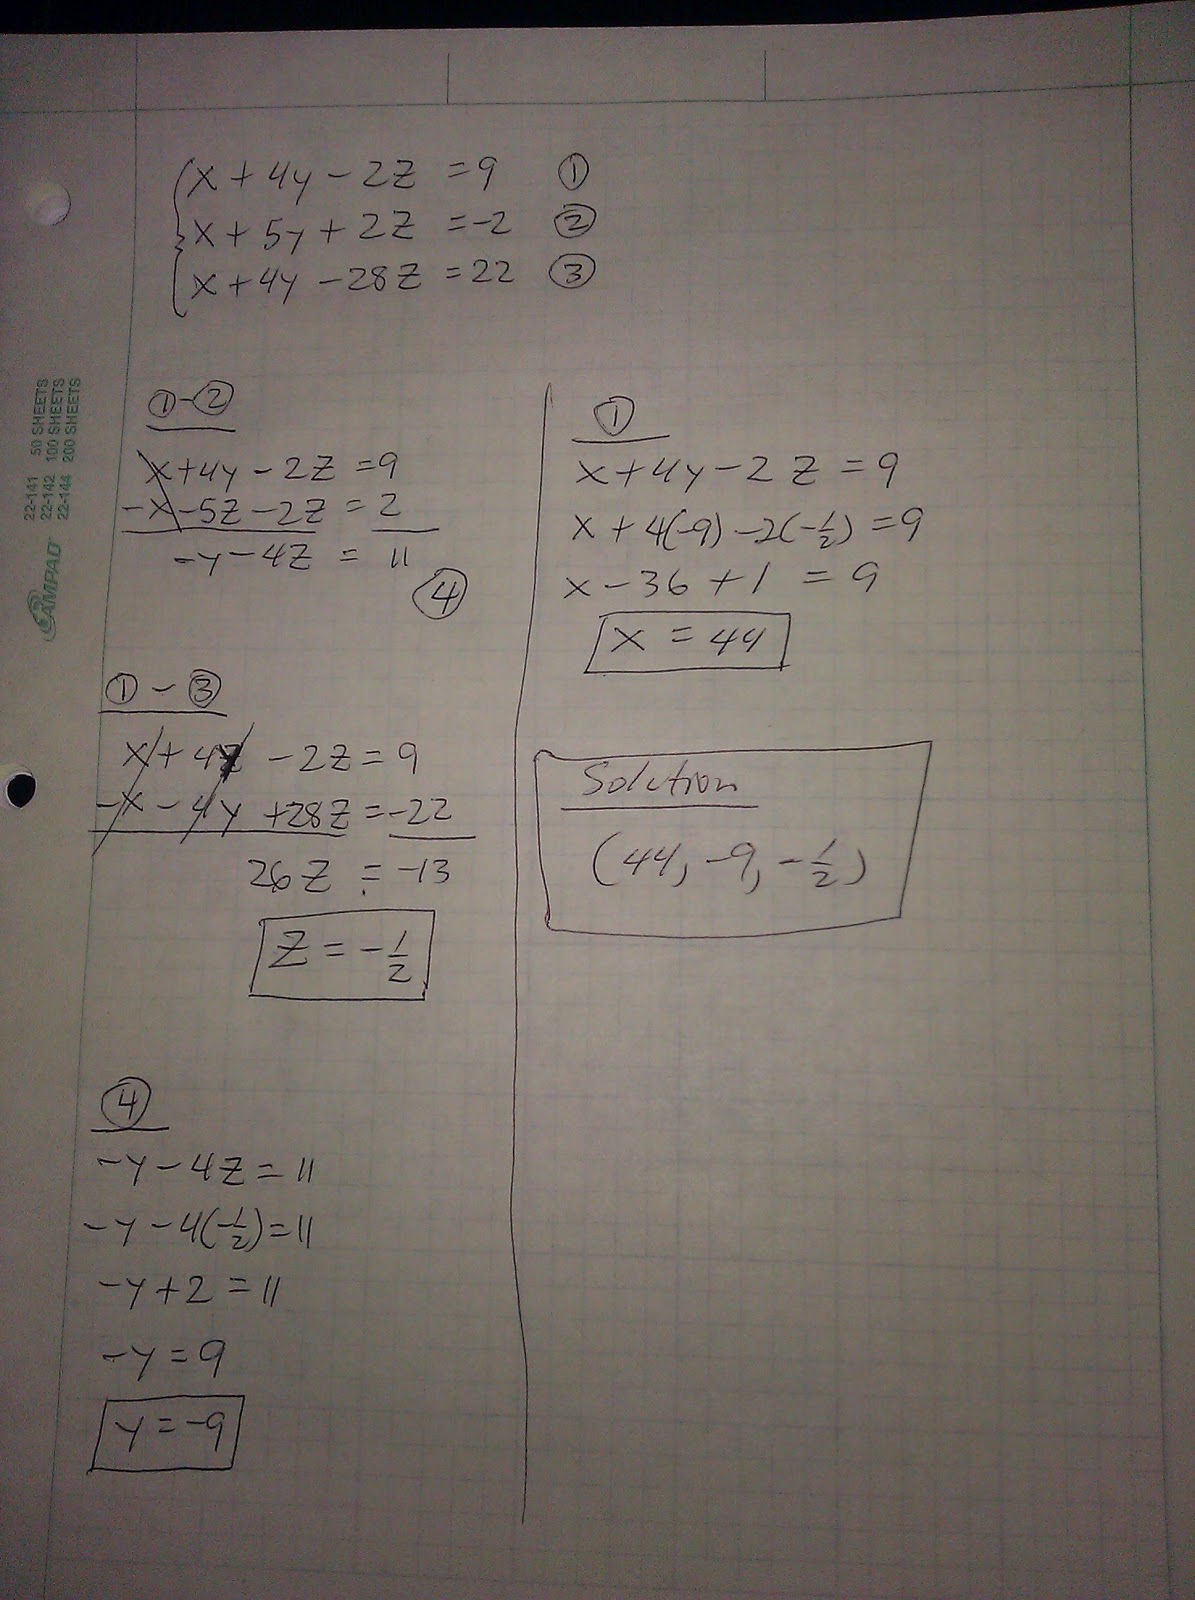 x + 4y - 2z = 9 ①
x + 5y + 2z = -2 ②
x + 4y - 28z = 22 ③
① - ②
x + 4y - 2z = 9
-x - 5z - 2z = 2
-y - 4z = 11
④
① - ③
x + 4y - 2z = 9
-x - 4y + 28z = -22
26z = -13
z = -1/2
④
-y - 4z = 11
-y - 4(-1/2) = 11
-y + 2 = 11
-y = 9
y = -9
①
x + 4y - 2z = 9
x + 4(-9) - 2(-1/2) = 9
x - 36 + 1 = 9
x = 44
Solution
(44, -9, -1/2)
22-141 50 SHEETS
22-142 100 SHEETS
22-144 200 SHEETS
AMPAD